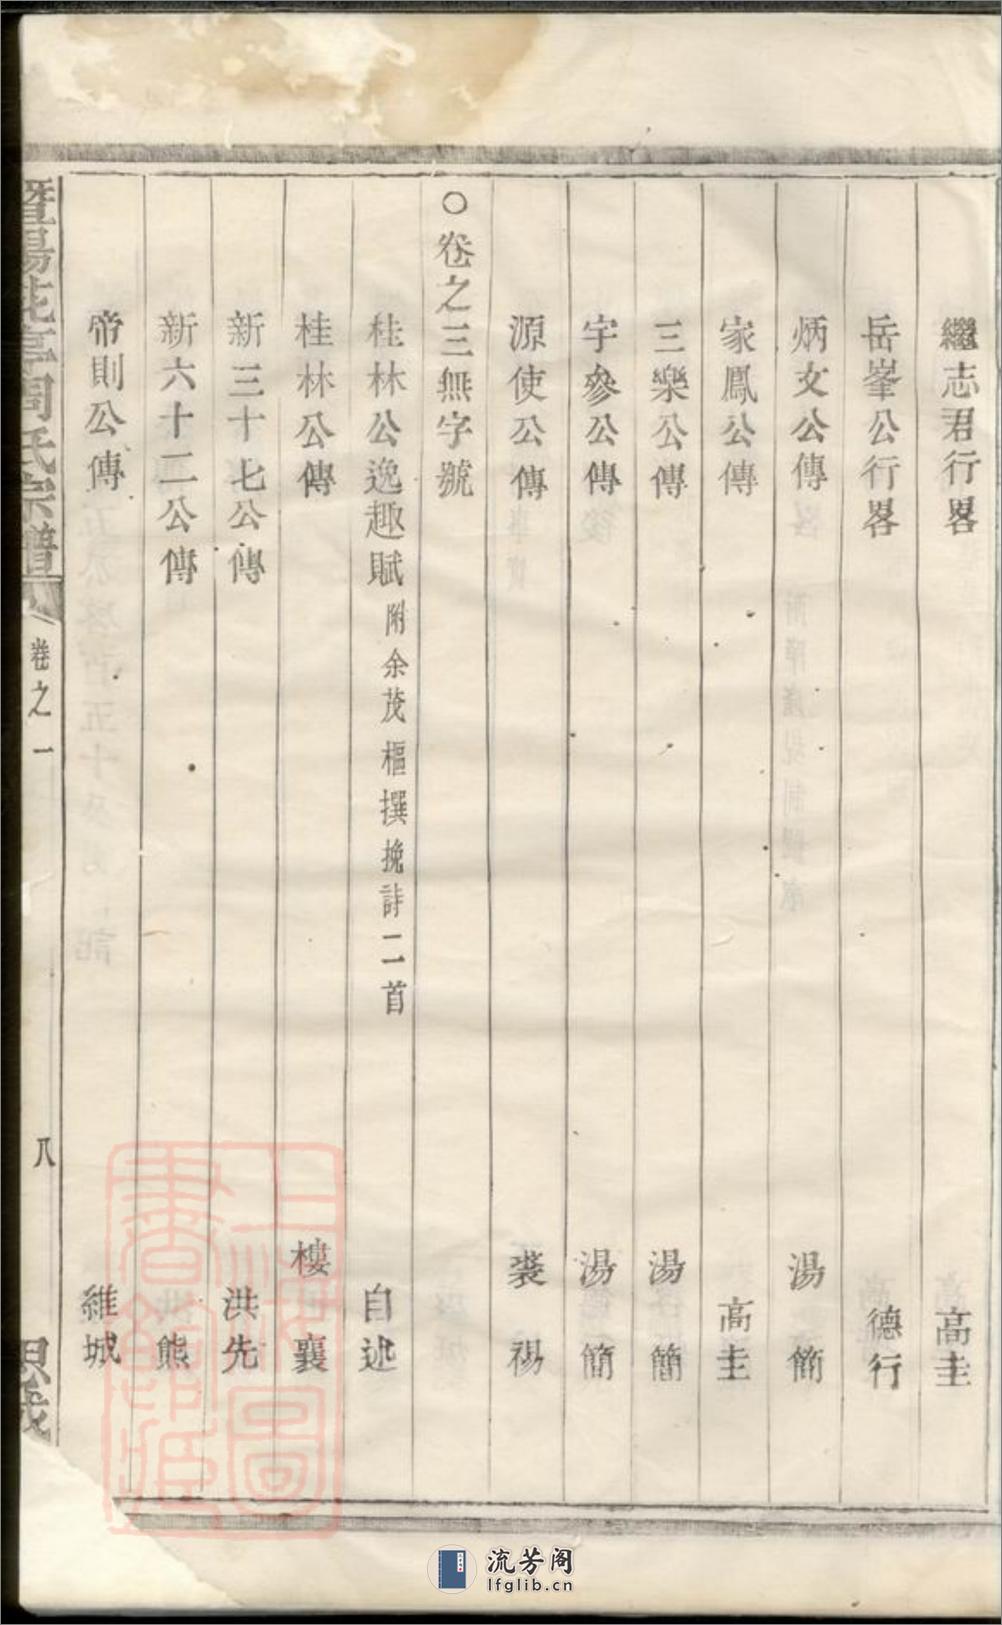 繼志君行畧 高圭
岳峯公行畧 德行
炳文公傳 湯簡
家鳳公傳 高圭
三樂公傳 湯簡
宇參公傳 湯簡
源使公傳 裘禓
○卷之三無字號
桂林公逸趣賦 附余茂樞撰挽詩二首 自述
桂林公傳 樓襄
新三十七公傳 洪先
新六十二公傳 熊
帝則公傳 維城
暨陽花亭周氏宗譜 卷之一 八
上海圖書館藏
流芳阁
lfglib.cn